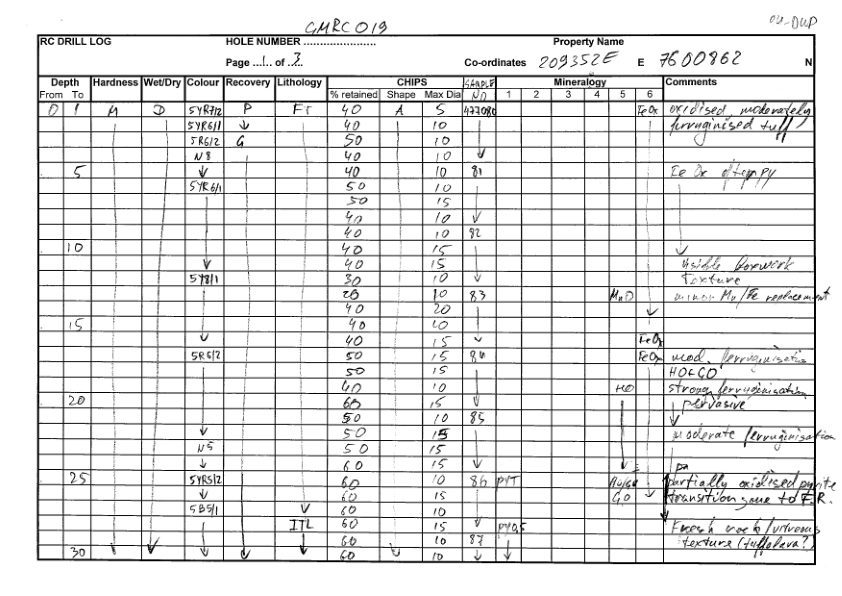 GMRC019
RC DRILL LOG HOLE NUMBER ........................ Property Name
Page ...1... of ..2.. Co-ordinates 209352E E 7600862 N
Depth Hardness Wet/Dry Colour Recovery Lithology CHIPS SAMPLE Mineralogy Comments
From To % retained Shape Max Dia NO 1 2 3 4 5 6
0 1 M D 5YR7/2 P FT 40 A 5 477080 FeOx oxidised moderately
5YR6/1 40 10 ferruginised tuff
5R6/2 G 50 10
N8 40 10
5 40 10 81 Fe Ox after py
5YR6/1 50 10
50 15
40 10
40 10 82
10 40 15
40 15 visible boxwork
5Y8/1 30 10 texture
20 10 83 MnO minor Mn/Fe replacement
40 20
15 40 10
40 15 FeOx
5R6/2 50 15 84 FeOx mod. ferruginisation
50 15 HO+GO
40 10 HO strong ferruginisation
20 60 15 pervasive
50 10 85
50 15 moderate ferruginisation
N5 50 15
60 15
25 5YR5/2 60 10 86 PYT partially oxidised pyrite
60 15 GO transition zone to F.R.
5B5/1 60 10
ITL 60 15 PY0,5 Fresh rock/vitreous
60 10 87 texture (tuffolava?)
30 60 10